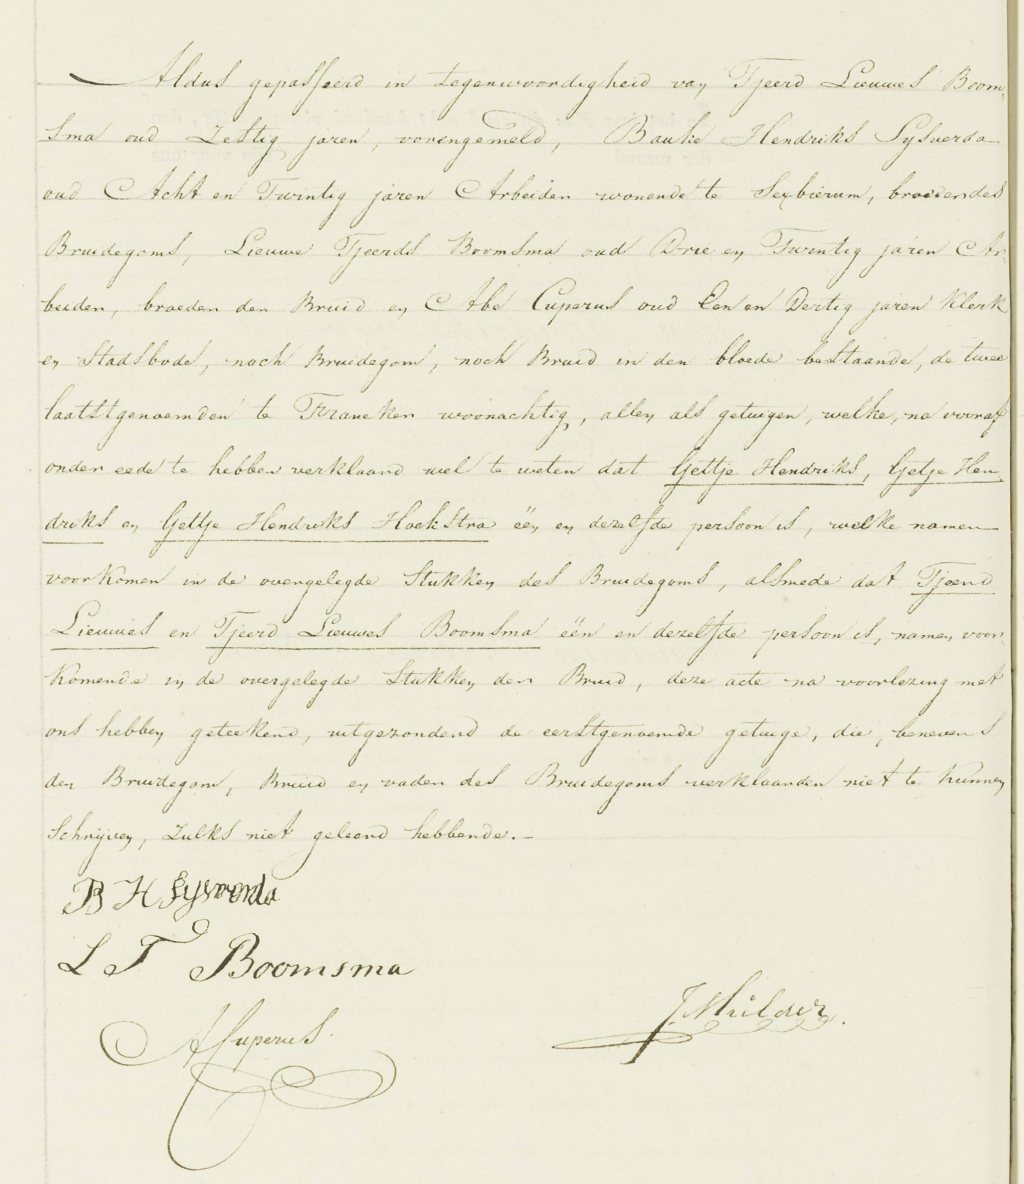 Aldus gepasseerd in tegenwoordigheid van Tjeerd Lieuwes Boom-
sma oud Zestig jaren, vorengemeld, Bauke Hendriks Sijswerda
oud Acht en Twintig jaren Arbeider wonende te Sexbierum, broeder des
Bruidegoms, Lieuwe Tjeerds Boomsma oud Drie en Twintig jaren Ar-
beider, broeder der Bruid en Abe Cuperus oud Een en Dertig jaren Klerk
en Stadsbode, noch Bruidegom, noch Bruid in den bloede bestaande, de twee
laatstgenoemden te Franeker woonachtig, allen als getuigen, welke, na vooraf
onder eede te hebben verklaard wel te weten dat Geltje Hendriks, Getje Hen-
driks en Geltje Hendriks Hoekstra één en dezelfde persoon is, welke namen
voorkomen in de overgelegde Stukken des Bruidegoms, alsmede dat Tjeerd
Lieuwes en Tjeerd Lieuwes Boomsma één en dezelfde persoon is, namen voor-
komende in de overgelegde Stukken der Bruid, deze acte na voorlezing met
ons hebben geteekend, uitgezonderd de eerstgenoemde getuige, die, benevens
den Bruidegom, Bruid en vader des Bruidegoms verklaarden niet te kunnen
Schrijven, zulks niet geleerd hebbende.-
B H Sijswerda
L T Boomsma
A Cuperus
J. Mulder.